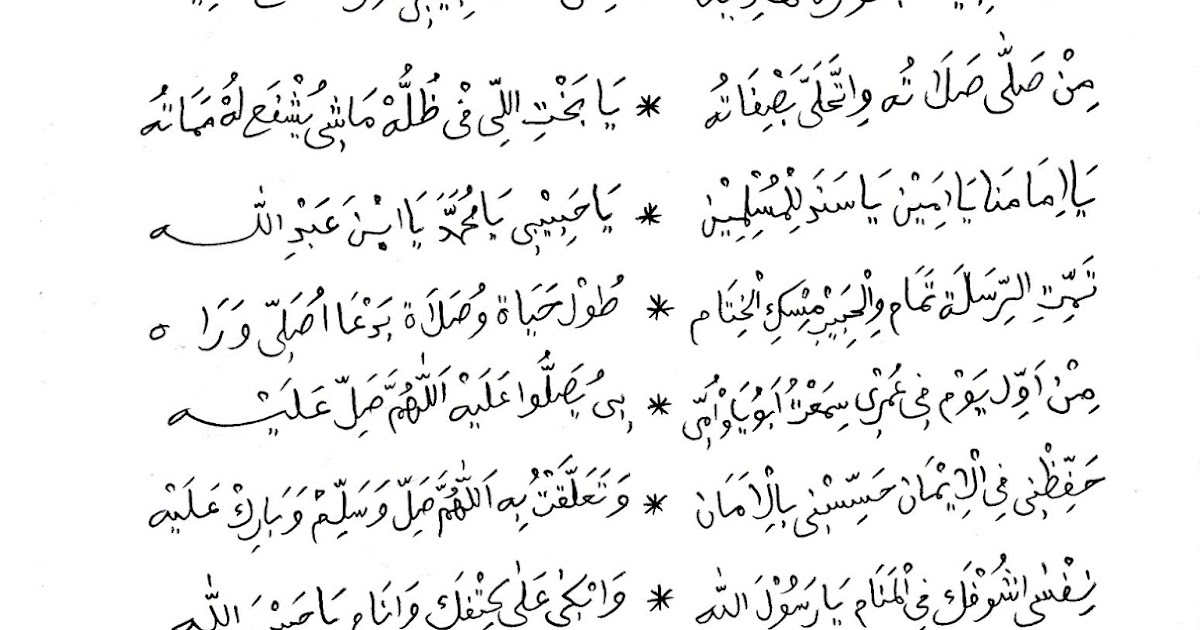 مِنْ صَلَّى صَلَاتُه وِاتْحَلَّى بَصِفَاتُه * يَا بَخْتِ اللِّى فْى ظُلُّهْ مَاشِى يُشْفَع لُهْ مَمَاتُه
يَا اِمَامَنَا يَا اَمِيْن يَا سَنَدَ لِلْمُسْلِمِيْن * يَا حَبِيْبِى يَا مُحَمَّدْ يَا ابْنَ عَبْدِ الله
تَمِّتِ الرِّسَلَة تَمَام وِالْحَبِيْبِ مِسْكِ الْخِتَام * طُوْل حَيَاة وُصَلَاة بَدْعَا اُصَلِّى وَرَاه
مِنْ اَوِّل يَوْم فِى عُمْرِي سِمَعْتُ اَبُويَا وْاُمِّى * بِى يُصَلُّوا عَلَيْه اَللّٰهُمَّ صَلِّ عَلَيْه
حَفِّظْنِى فِى الْاِيْمَان حَسِّسْنِى بِالْاَمَان * وَتَعَلَّقْتُ بِه اَللّٰهُمَّ صَلِّ وَسَلِّمْ وَبَارِكْ عَلَيْه
نِفْسِى اشُوْفَك فِى الْمَنَام يَا رَسُوْلَ الله * وَانْكَى عَلَى كِتْفِك وَانَام يَا حَبِيْبَ الله